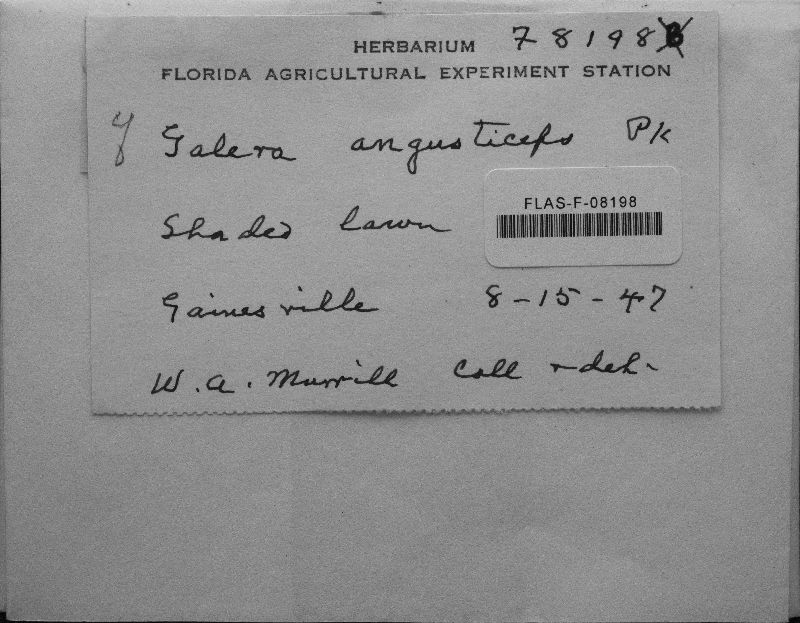 HERBARIUM F 8198
FLORIDA AGRICULTURAL EXPERIMENT STATION
Galera angusticeps Pk
Shaded lawn
FLAS-F-08198
Gainesville 8-15-47
W. A. Murrill Coll + det.